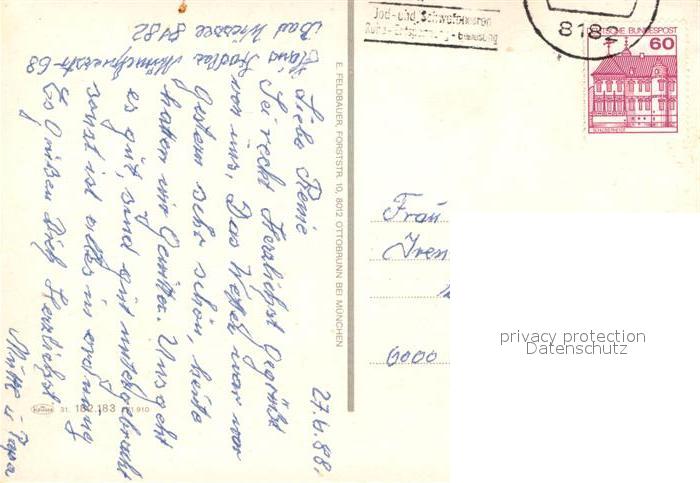 Bad Wiessee 8182
Hans Stadler Münchnerstr 68
27.6.88.
Liebe Renie
Sei recht Herzlichst Gegrüßt
von uns. Das Wetter war vor
Gestern sehr schön, heute
hatten wir Gewitter. Uns geht
es gut, sind gut untergebracht
sonst ist alles in ordnung
Es Grüßen Dich Herzlichst
Mutti u Papa
E. FELDBAUER, FORSTSTR. 10, 8012 OTTOBRUNN BEI MÜNCHEN
31. 182.183
Jod- und Schwefelbäder
8182
DEUTSCHE BUNDESPOST
60
Frau
Iren
6000
privacy protection
Datenschutz